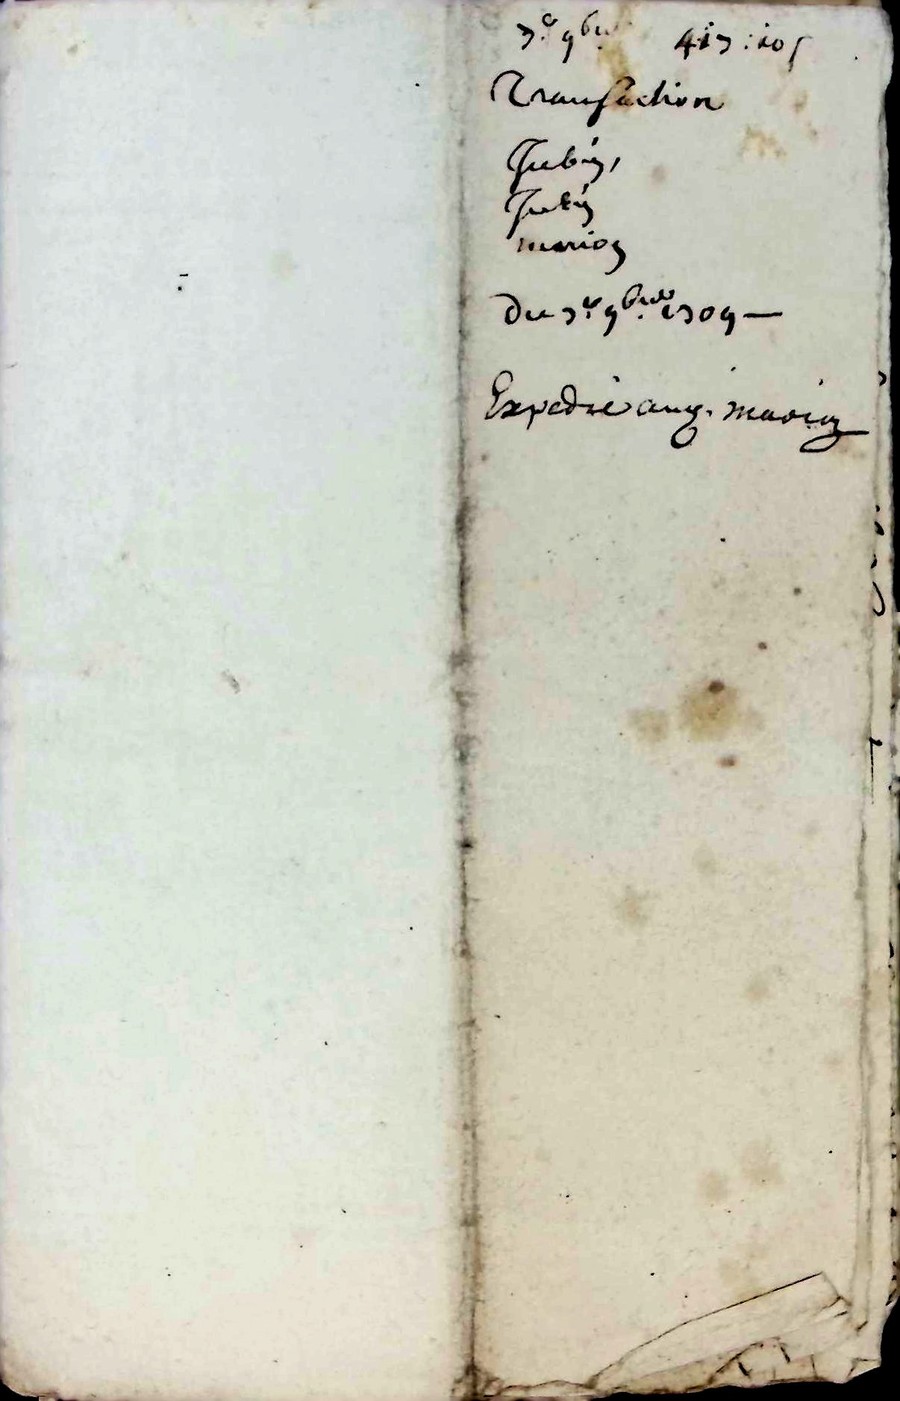 7e 9bre 417:10s
Transaction
Jubin,
Jubin
marion
Du 7e 9bre 1709
Expedié aud. marion